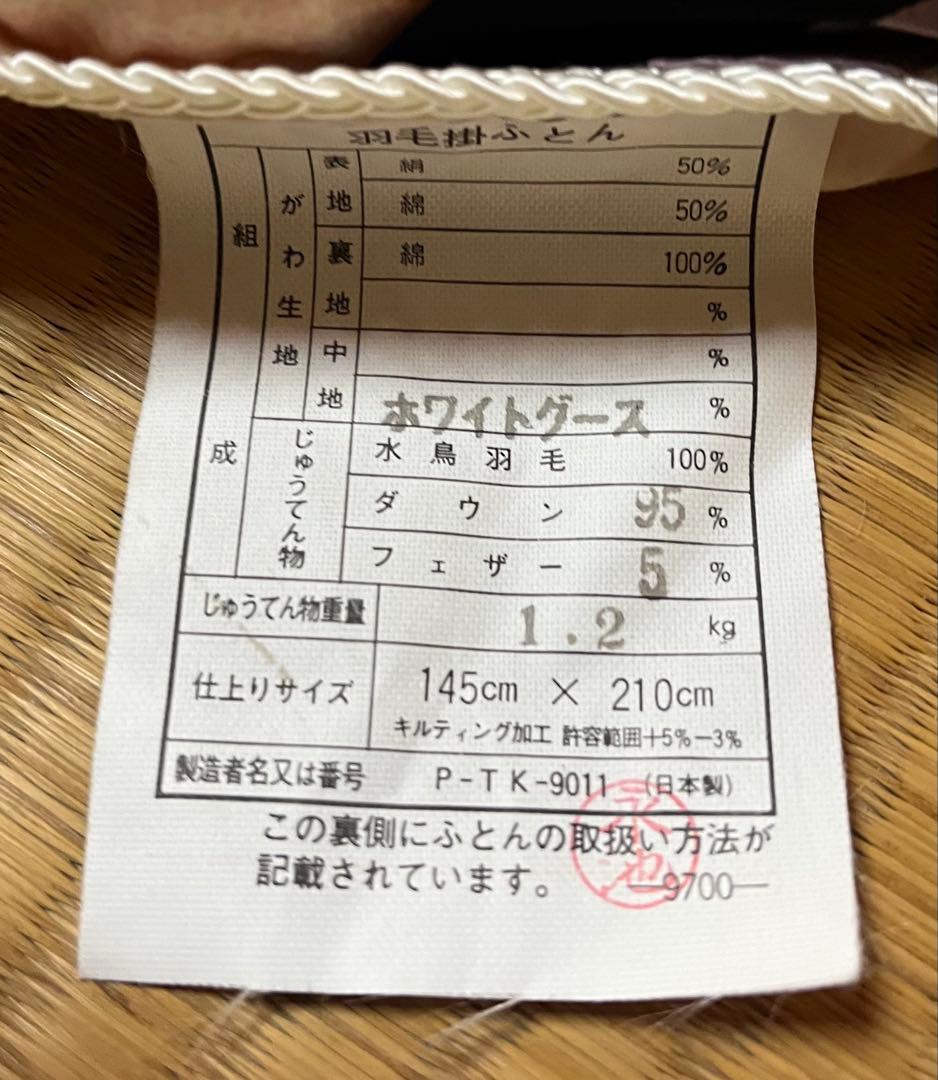 羽毛掛ふとん
組成
がわ生地
表地 絹 50%
綿 50%
裏地 綿 100%
%
中地 %
%
ホワイトグース
じゅうてん物
水鳥羽毛 100%
ダウン 95%
フェザー 5%
じゅうてん物重量 1.2 kg
仕上りサイズ 145cm × 210cm
キルティング加工 許容範囲+5%−3%
製造者名又は番号 P-TK-9011 (日本製)
この裏側にふとんの取扱い方法が
記載されています。 —9700—
永池